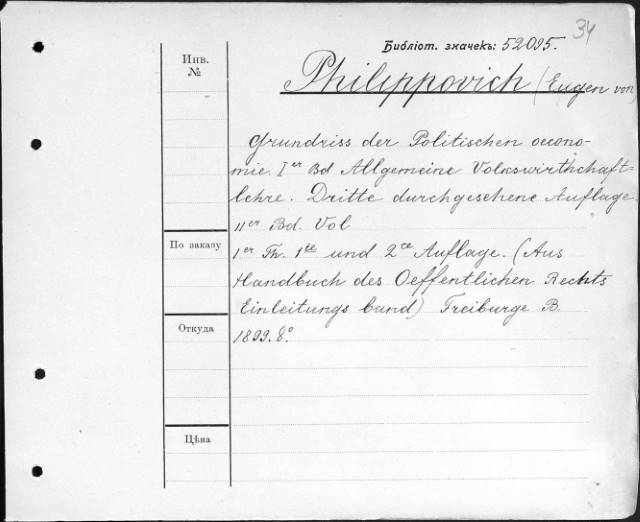 34
Библіот. значекъ: 52095.
Инв.
№
Philippovich (Eugen von)
Grundriss der Politischen oecono-
mie. Ier Bd Allgemeine Volkswirthchaft=
lehre. Dritte durchgesehene Auflage.
IIer Bd. Vol
По заказу
1er Th. 1te und 2te Auflage. (Aus
Handbuch des Oeffentlichen Rechts
Einleitungs band) Freiburge B.
Откуда
1899. 8°
Цѣна